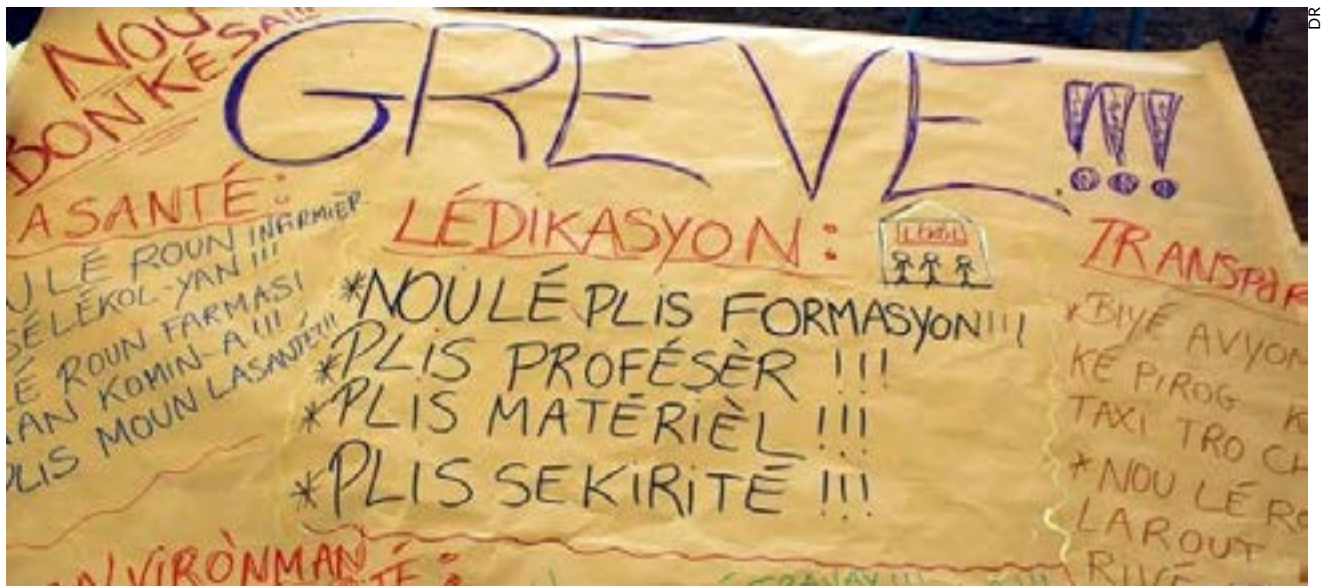 NOU
BONKÉSA!!!
GREVE !!!
ASANTÉ:
ULÉ ROUN INFIRMIÈR
SÉLÉKOL-YAN !!!
É ROUN FARMASI
AN KOMIN-A !!!
PLIS MOUN LASANTÉ!!!
LÉDIKASYON:
LEKOL
*NOU LÉ PLIS FORMASYON!!!
*PLIS PROFÉSÈR !!!
*PLIS MATÉRIÈL !!!
*PLIS SEKIRITÉ !!!
TRANSPÒR
*BIYÉ AVYON
KÉ PIROG K
TAXI TRO CH
*NOU LÉ RO
LAROUT
RIVÉ
ANVIRÒNMAN
TÉ:
DR